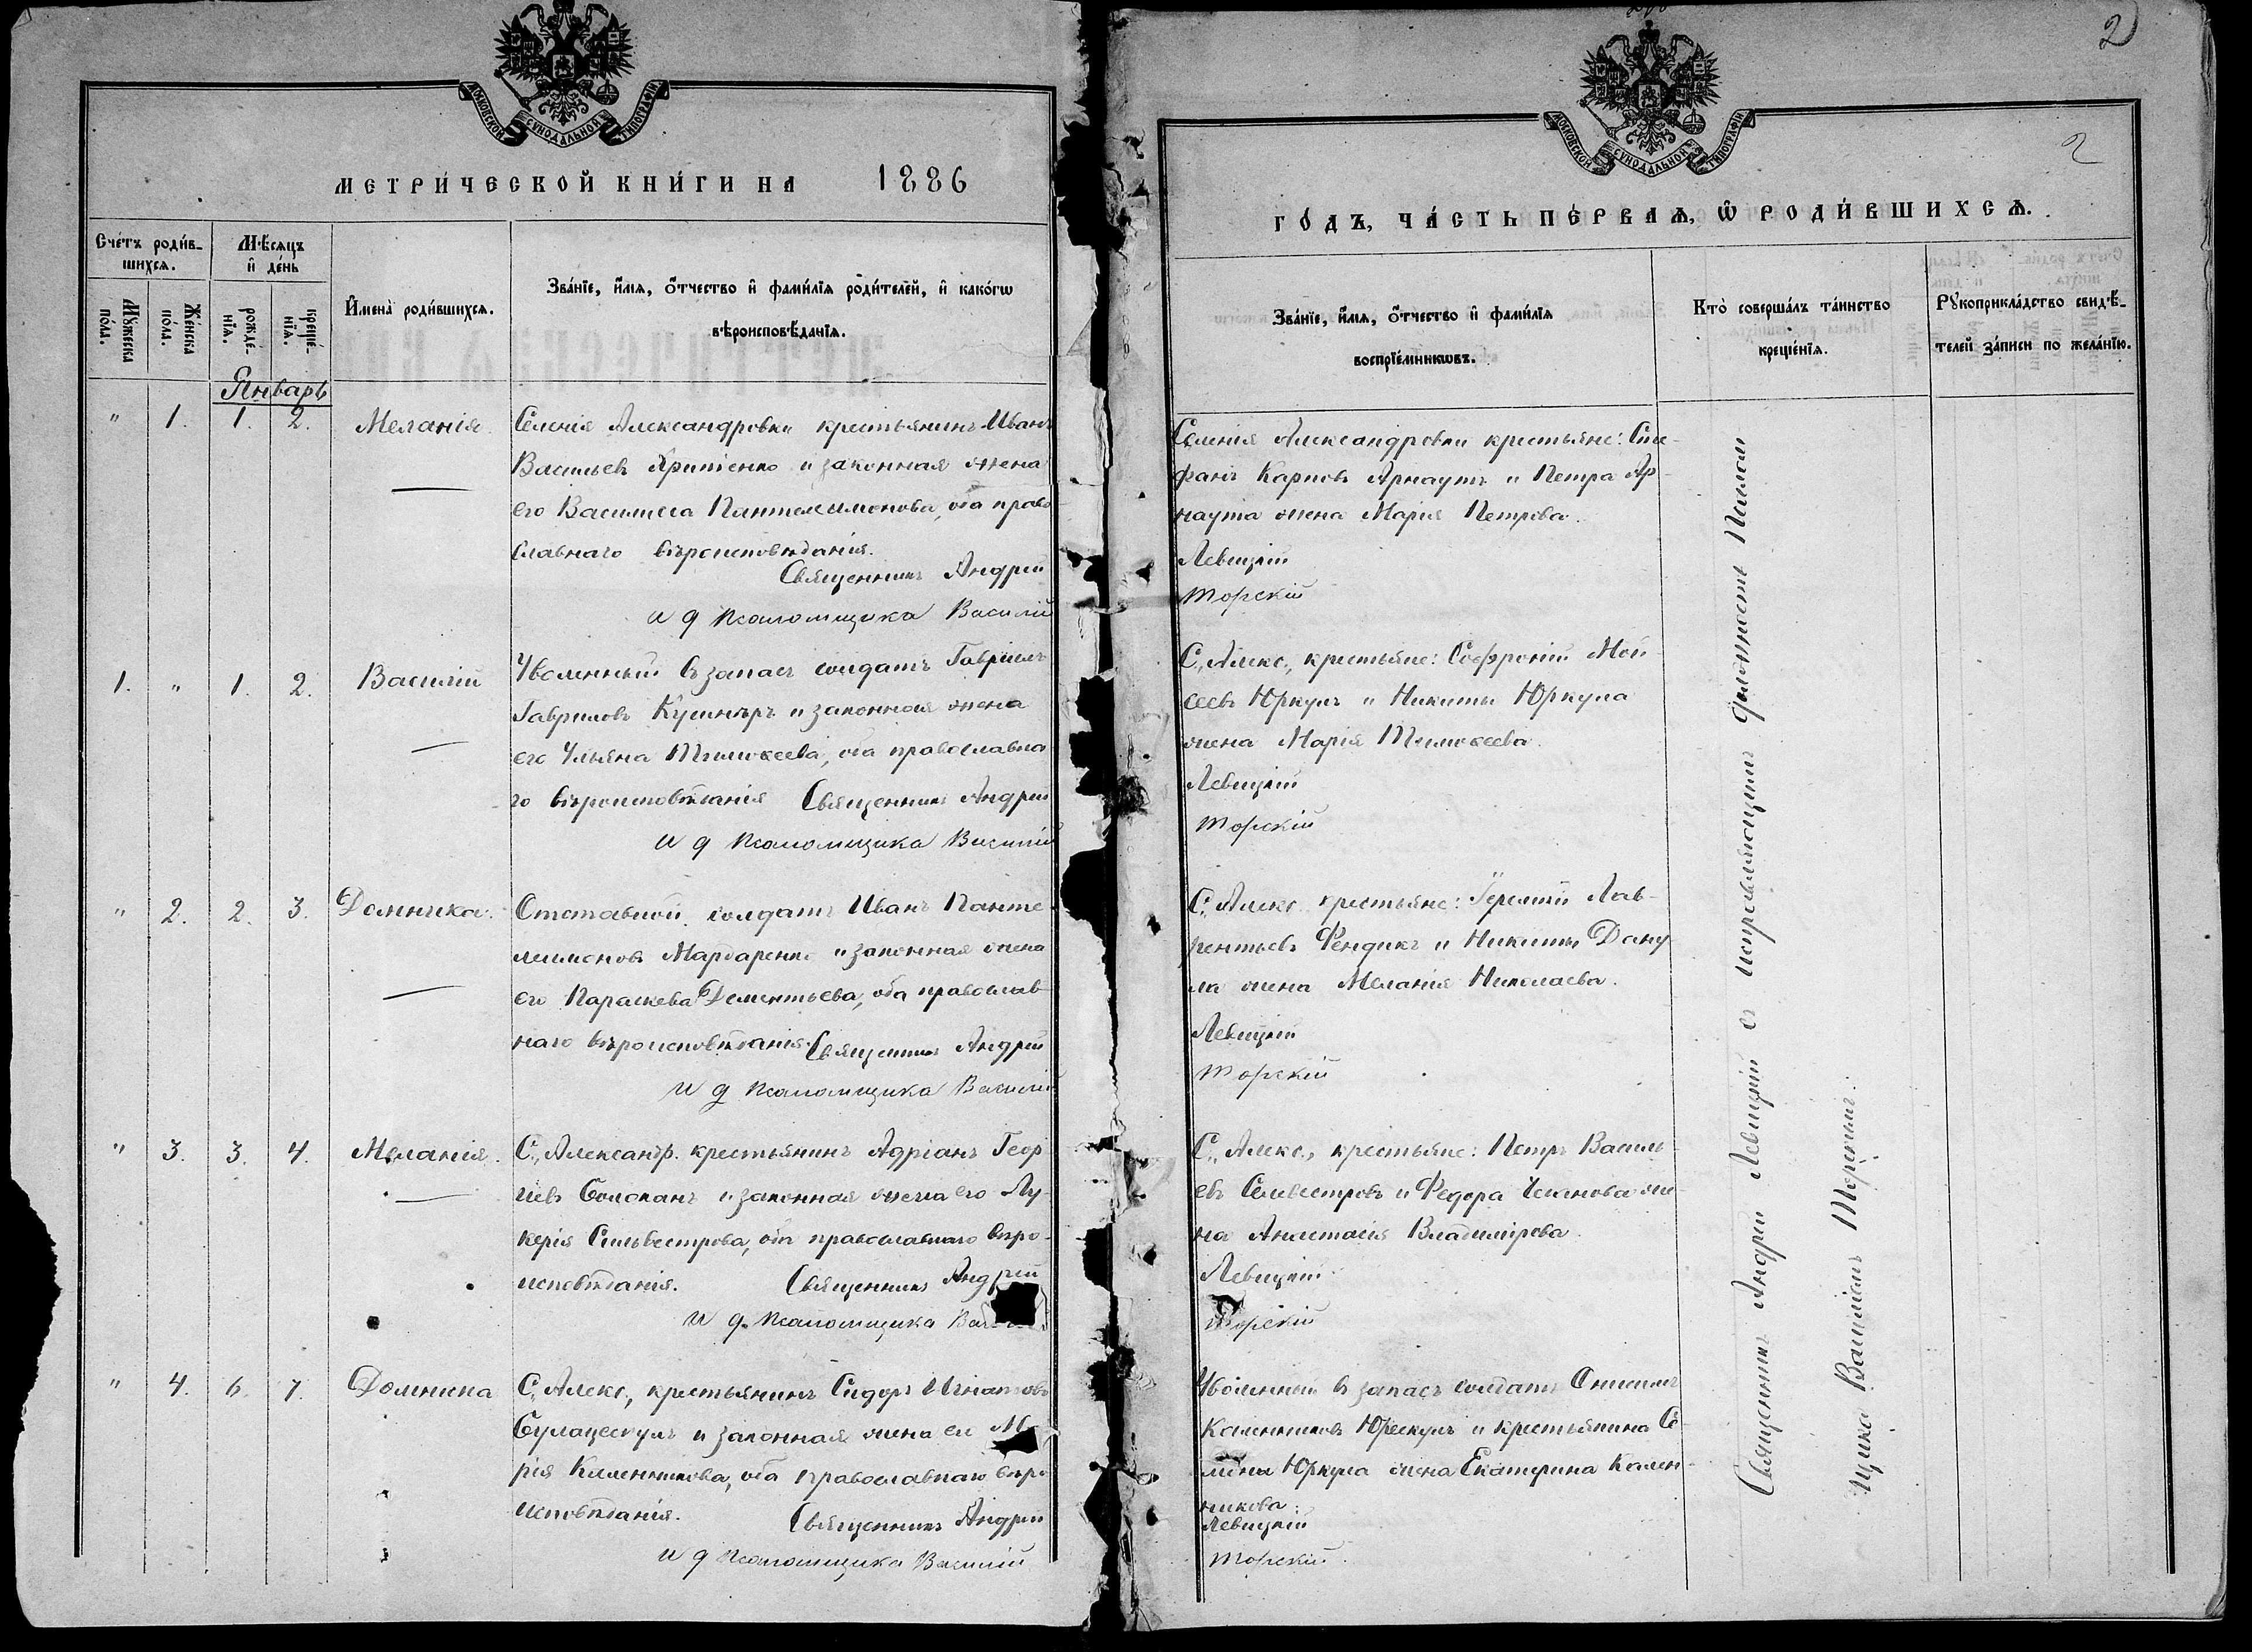 2
2
МОСКОВСКОЙ СУНОДАЛЬНОЙ ТИПОГРАФІИ
МЕТРИ́ЧЕСКОЙ КНИ́ГИ НА 1886
Сче́тъ роди́в-
шихсѧ.
Мѣ́сѧцъ
и҆ де́нь
Мꙋ́жеска
по́ла.
Же́нска
по́ла.
рожде́-
нїѧ.
креще́-
нїѧ.
И҆мена̀ роди́вшихсѧ.
Зва́нїе, и҆́мѧ, ѻ҆́тчество и҆ фами́лїѧ роди́телей, и҆ како́гѡ
вѣроисповѣ́данїѧ.
Январь
" 1. 1. 2. Меланія.
Селенія Александровки крестьянинъ Иванъ
Васильевъ и законная жена
его Василиса Пантелеимонова, оба право
славнаго вѣроисповѣданія.
Священникъ Андрей
и д псаломщика Василій
1. " 1. 2. Василій
Уволенный въ запасъ солдатъ Гавріилъ
Гавриловъ Кушниръ и законная жена
его Ульяна Тимоѳеева, оба православна
го вѣроисповѣданія Священникъ Андрей
и д псаломщика Василій
" 2. 2. 3. Домникія.
Отставной солдатъ Иванъ Панте
леимоновъ Мардаренко и законная жена
его Параскева Дементьева, оба православ-
наго вѣроисповѣданія. Священникъ Андрей
и д псаломщика Василій
" 3. 3. 4. Меланія.
С. Александр. крестьянинъ Адріанъ Геор
гіевъ и законная жена его Лу-
керія Сильвестрова, оба православнаго вѣро-
исповѣданія. Священникъ Андрей
и д. псаломщика
" 4. 6. 7. Домникія
С. Алекс., крестьянинъ Сидоръ Игнатовъ
и законная жена его Ма
рія Калинникова, оба православнаго вѣро
исповѣданія. Священникъ Андрей
и д псаломщика Василій
МОСКОВСКОЙ СУНОДАЛЬНОЙ ТИПОГРАФІИ
ГО́ДЪ, ЧА́СТЬ ПЕ́РВАѦ, Ѡ҆ РОДИ́ВШИХСѦ.
Зва́нїе, и҆́мѧ, ѻ҆́тчество и҆ фами́лїѧ
воспрїе́мникѡвъ.
Кто̀ соверша́лъ та́инство
креще́нїѧ.
Рꙋкоприкла́дство свидѣ́-
телей за́писи по жела́нїю.
Селенія Александровки крестьяне: Сте-
фанъ Карповъ Арнаутъ и Петра Ар-
наута жена Марія Петрова.
Левицкій
Торскій
С. Алекс., крестьяне: Софроній Мои
сеевъ Юркулъ и Никиты Юркула
жена Марія Тимоѳеева.
Левицкій
Торскій
С. Алекс. крестьяне: Іеремій Лав-
рентьевъ Фендикъ и Никиты Дану
ла жена Меланія Николаева.
Левицкій
Торскій
С. Алекс., крестьяне: Петръ Василь-
евъ Селивестровъ и Федора Чеканова же-
на Анастасія Владимірова.
Левицкій
Торскій
Уволенный въ запасъ солдатъ Онисимъ
Калинниковъ Юркулъ и крестьянина Се
мена Юркула жена Екатерина Калин-
никова.
Левицкій
Торскій.
Священникъ Андрей Левицкій съ исправляющимъ должность Псалом
щика Василіемъ Торскимъ.